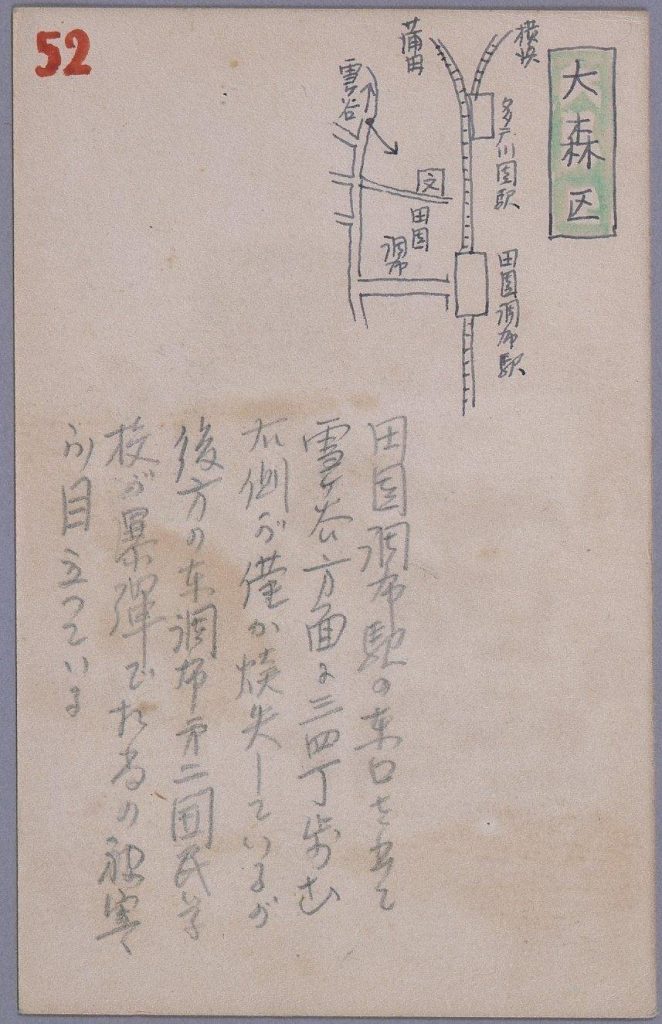 52
大森区
横浜
蒲田
多戸川園駅
田園調布駅
雪ヶ谷
文
田園
調布
田園調布駅の東口を出て
雪ヶ谷方面に三四丁歩む
右側が僅か焼失しているが
後方の東調布第二国民学
校が爆弾で相当の被害
が目立っている